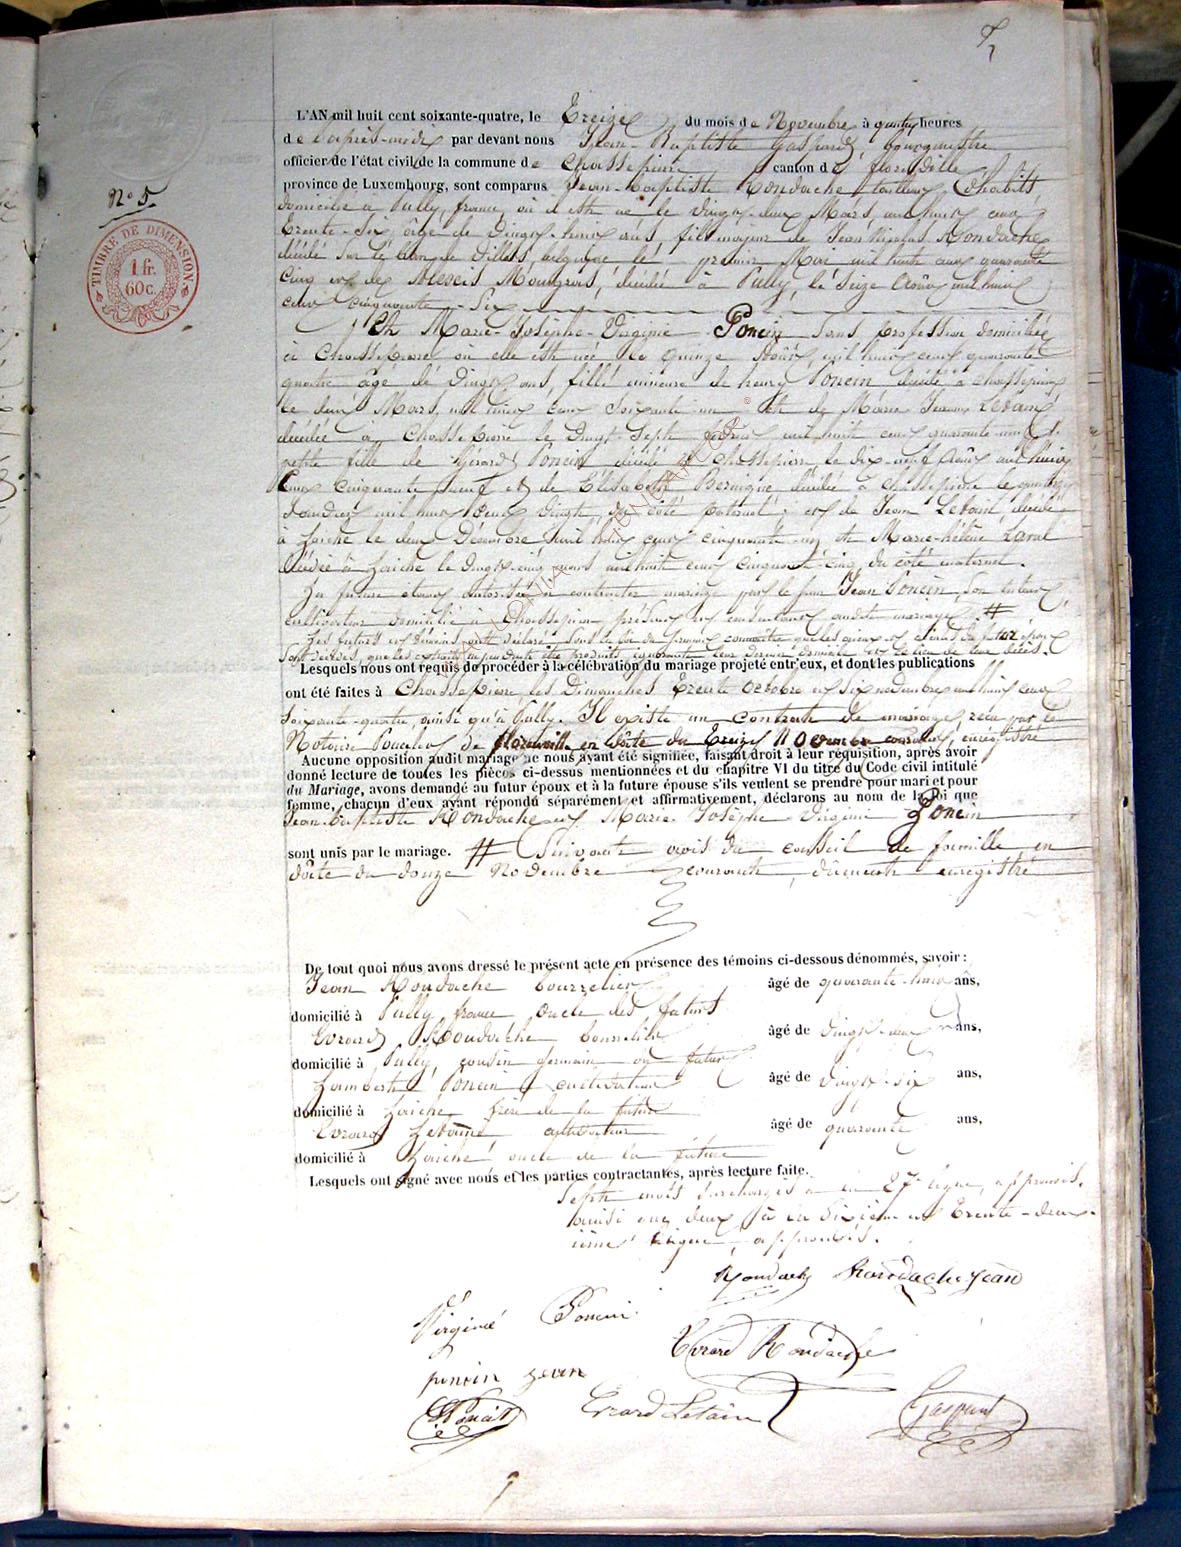 N° 5.
TIMBRE DE DIMENSION
1 fr.
60 c.
L'AN mil huit cent soixante-quatre, le Treize du mois de Novembre à quatre heures
de l'après-midi par devant nous Jean-Baptiste Gaspard, bourgmestre
officier de l'état civil de la commune de Chassepierre canton de florenville
province de Luxembourg, sont comparus Jean-baptiste Rondache tailleur d'habits
domicilié à Pully, france, où il est né le Vingt-deux Mars, mil huit cent
Trente-Six, âgé de Vingt-huit ans, fils majeur de Jean Nicolas Rondache
décédé sur le ban de Villers, belgique le premier Mai mil huit cent quarante
Cinq et de Alexis Mougeois, décédée à Pully, le Seize Août mil huit
cent cinquante-Six
Et Marie-Josèphe-Virginie Poncin Sans profession domiciliée
à Chassepierre où elle est née le quinze Août, mil huit cent quarante
quatre âgé de Vingt ans, fille mineure de henry Poncin décédé à chassepierre
le deux Mars, mil huit cent Soixante-un et de Marie Jeanne Letané
décédée à Chassepierre le Vingt-Sept mil huit cent quarante
petite fille de Gérard Poncin décédé à Chassepierre le dix-neuf Août mil huit
Cent Cinquante neuf et de Elisabeth décédée à Chassepierre le
mil huit Cent Vingt, du côté paternel; et de Jean Letané, décédé
à Laiche le deux Décembre mil huit cent cinquante-un et Marie-hélène Laval
décédée à Laiche le Vingt-cinq mars mil huit cent Cinquante-Cinq, du côté maternel.
La future étant autorisée à contracter mariage par le Jean Poncin, Son tuteur,
cultivateur domicilié à Chassepierre présent et consentant audit mariage #
Les futurs et témoins ont déclaré
Lesquels nous ont requis de procéder à la célébration du mariage projeté entr'eux, et dont les publications
ont été faites à Chassepierre les Dimanches Trente octobre et six novembre mil huit cent
Soixante-quatre, ainsi qu'à Pully. Il existe un contrat de mariage, reçu par le
Notaire de florenville en date du Treize Novembre courant, enrégistré
Aucune opposition audit mariage ne nous ayant été signifiée, faisant droit à leur réquisition, après avoir
donné lecture de toutes les pièces ci-dessus mentionnées et du chapitre VI du titre du Code civil intitulé
du Mariage, avons demandé au futur époux et à la future épouse s'ils veulent se prendre pour mari et pour
femme, chacun d'eux ayant répondu séparément et affirmativement, déclarons au nom de la loi que
Jean-baptiste Rondache et Marie-Josèphe-Virginie Poncin
sont unis par le mariage. # Suivant avis du conseil de famille en
date du douze Novembre courant, dûment enrégistré
De tout quoi nous avons dressé le présent acte en présence des témoins ci-dessous dénommés, savoir :
Jean Rondache bourrelier âgé de quarante-huit ans,
domicilié à Pully, france oncle des futurs
Evrard Rondache âgé de Vingt-deux ans,
domicilié à Pully, cousin germain au futur
Lambert Poncin cultivateur âgé de Vingt-Six ans,
domicilié à Laiche, frère de la future
Evrard Letané cultivateur âgé de quarante ans,
domicilié à Laiche oncle de la future
Lesquels ont signé avec nous et les parties contractantes, après lecture faite.
Sept mots surchargés à la 27e ligne, approuvés,
ainsi que deux à la dixième et Trente-deux-
ième ligne, approuvés.
Rondache Rondache Jean
Virginie Poncin
Evrard Rondache
poncin jean
Evrard Letané
Gaspard